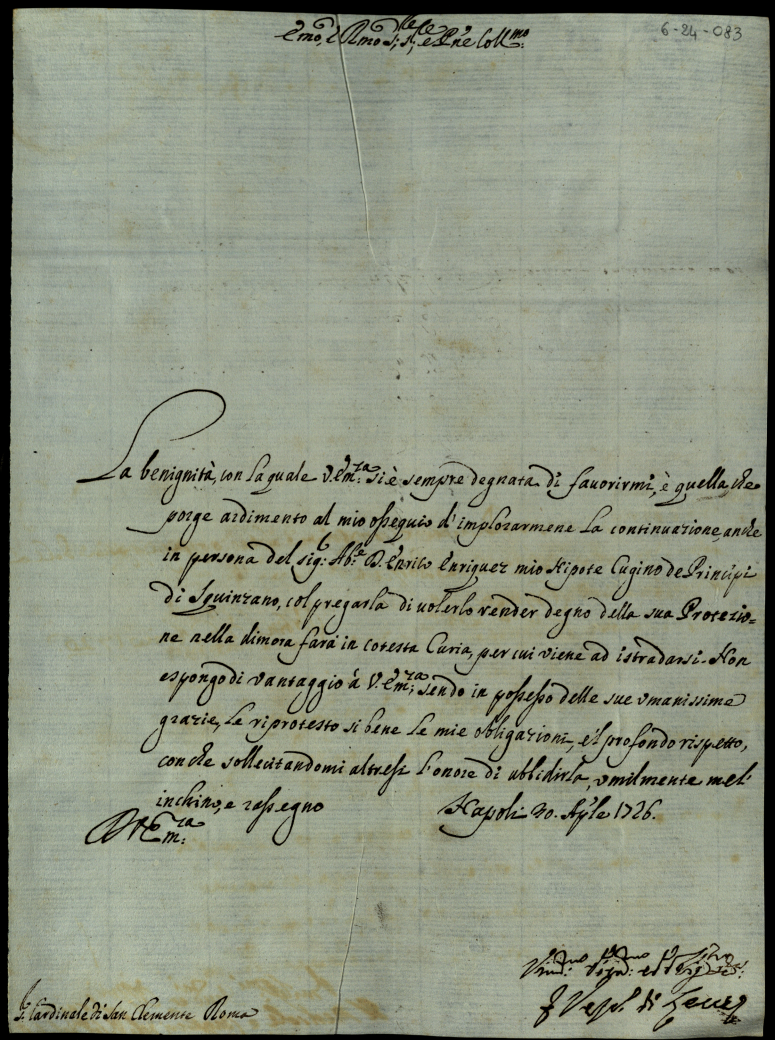 6-24-083
Emo, e Rmo Sig.re, Sig.re e Pne Coll.mo
La benignità, con la quale V. Em.za si è sempre degnata di favorirmi, è quella, che
porge ardimento al mio ossequio d'implorarmene la continuazione, anche
in persona del sig.r Ab.e D. Enrico Enriquez mio Nipote Cugino de Principi
di Squinzano, col pregarla di volerlo render degno della sua Protezio=
ne nella dimora farà in cotesta Curia, per cui viene ad istradarsi. Non
espongo di vantaggio à V. Em.za, sendo in possesso delle sue umanissime
grazie, le riprotesto si bene le mie obligazioni, e'l profondo rispetto,
con che sollecitandomi altresi l'onore di ubbidirla, umilmente mel'
inchino, e rassegno
Napoli 30. Ap'le 1726.
D V Em.za
S. Cardinale di San Clemente Roma